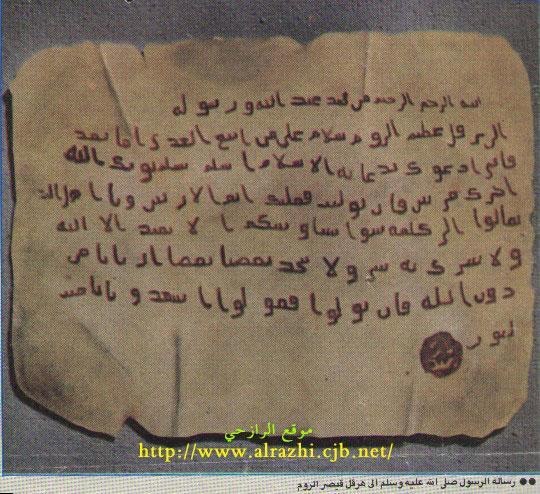 الله الرحمن الرحيم من محمد عبد الله ورسوله
الى هرقل عظيم الروم سلام على من اتبع الهدى اما بعد
فانى ادعوك بدعاية الاسلام اسلم تسلم يوتك الله
اجرك مرتين فان توليت فعليك اثم الاريسيين ويا اهل
تعالوا الى كلمة سوا بيننا وبينكم الا نعبد الا الله
ولا نشرك به ولا يتخذ بعضنا بعضا اربابا من
دون الله فان تولوا فقولوا اشهدوا بانا
موقع الرازحي
http://www.alrazhi.cjb.net/
●● رسالة الرسول صلى الله عليه وسلم الى هرقل قيصر الروم